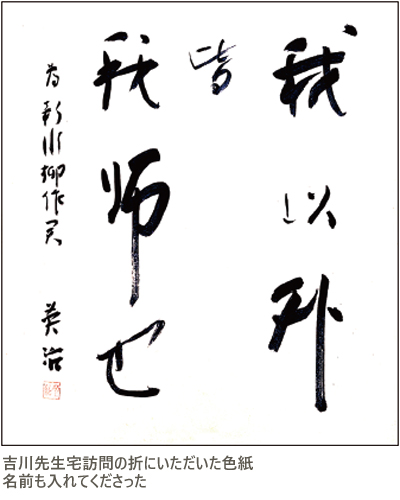 我以外
皆
我師也
為 柳作君 英治
吉川先生宅訪問の折にいただいた色紙
名前も入れてくださった